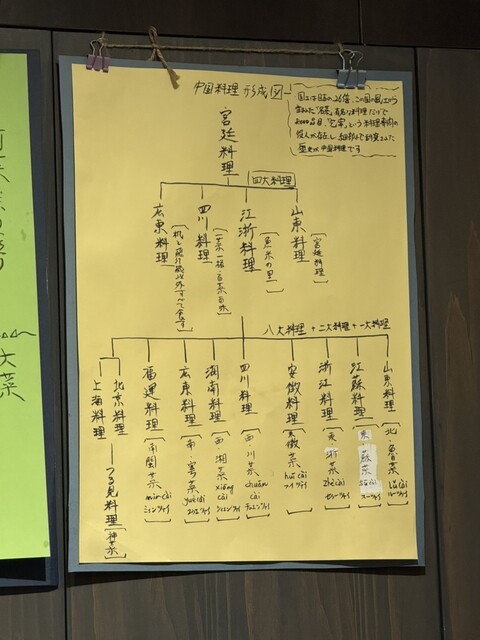 中国料理 形成図
国土は日本の26倍、この国の風土から
2000品目、"宮宰"という料理専門の
歴史が中国料理です
宮廷料理
四大料理
山東料理
[宮廷料理]
江浙料理
[魚米の里]
四川料理
[一菜一格・百菜百味]
広東料理
[机と飛行機以外すべて食す]
八大料理+二大料理+一大料理
山東料理
[北・魯菜 lǔ cài ルーツァイ]
江蘇料理
[東・蘇菜 sū cài スーツァイ]
浙江料理
[東・浙菜 zhè cài ゼァーツァイ]
安徽料理
[東・徽菜 huī cài フイツァイ]
四川料理
[西・川菜 chuān cài チュエンツァイ]
湖南料理
[西・湘菜 xiāng cài シェンツァイ]
広東料理
[南・粤菜 yuè cài ユエツァイ]
福建料理
[南・閩菜 mǐn cài ミィンツァイ]
北京料理
つる見料理
[神菜]
上海料理
大菜